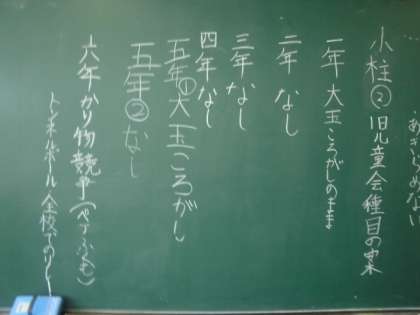 あきらめない
小柱② 旧児童会種目の案
一年 大玉ころがしのまま
二年 なし
三年 なし
四年 なし
五年① 大玉ころがし
五年② なし
六年 かり物競争(ペアふくむ)
トンネルボール 全校でのリレー